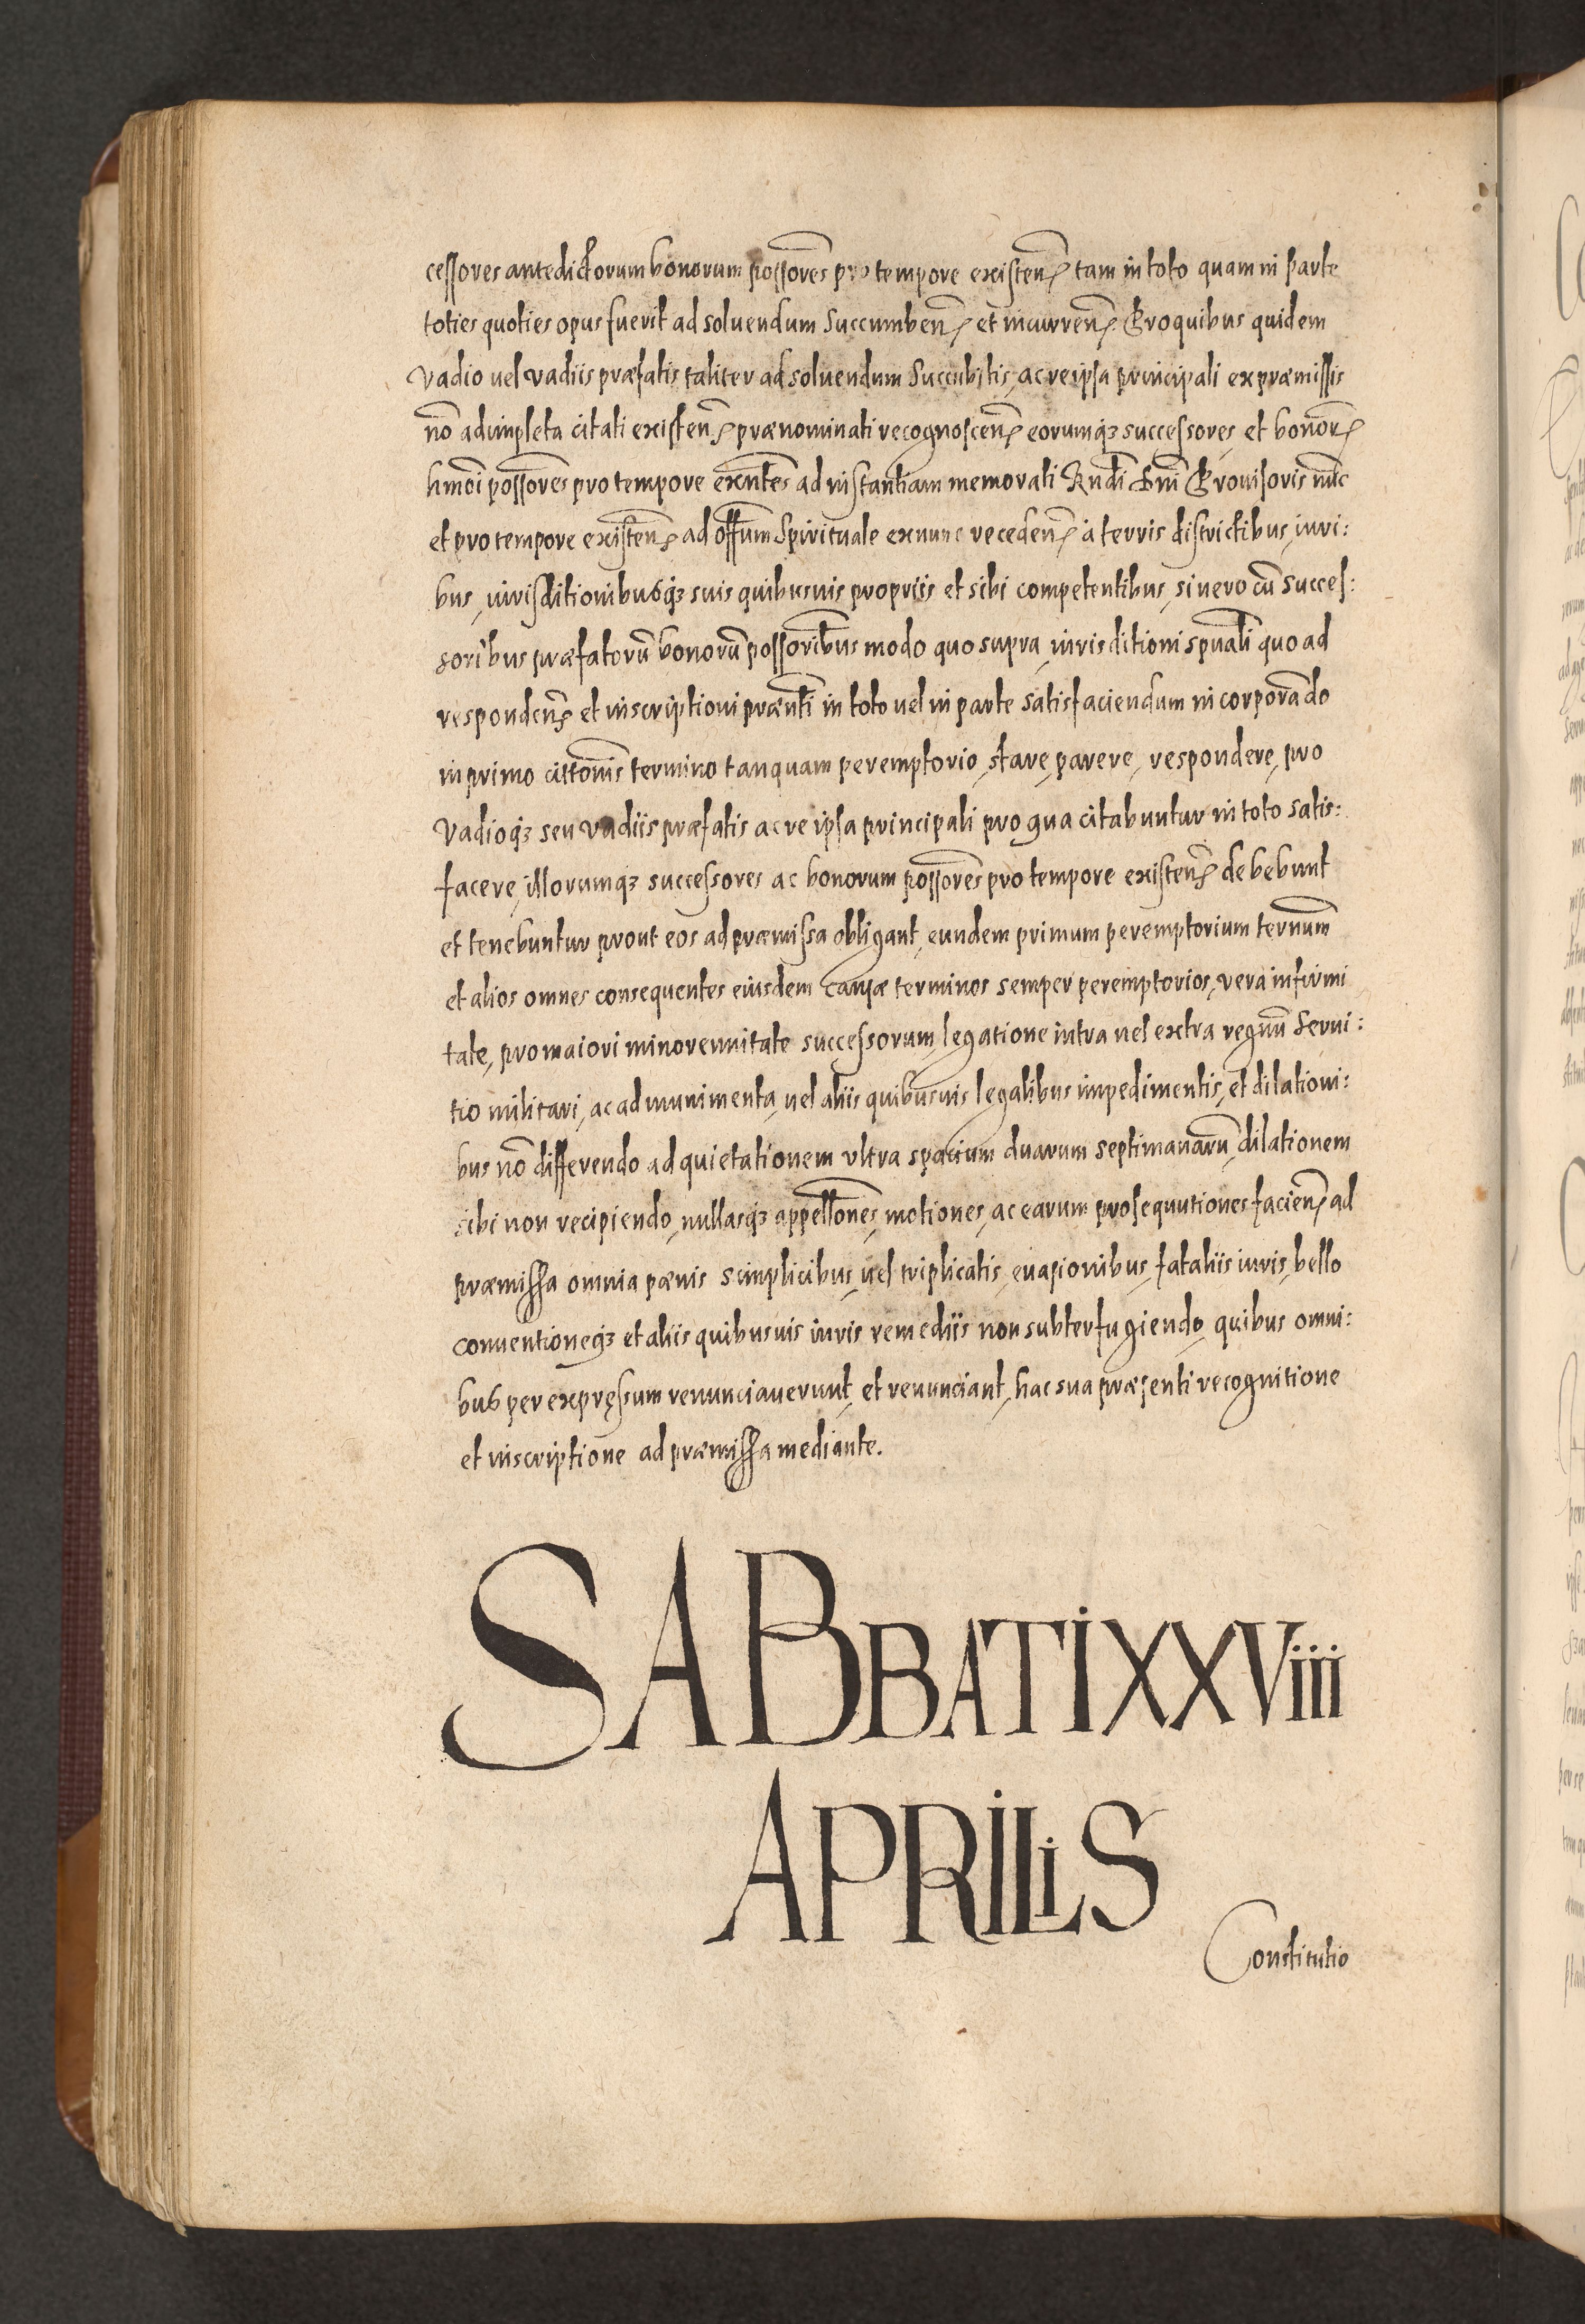 cessores antedictorum bonorum possores pro tempore existen tam in toto quam in parte
toties quoties opus fuerit ad soluendum succumben et incurren Pro quibus quidem
Vadio uel vadiis præfatis taliter ad soluendum succubitis, ac re ipsa principali ex præmissis
no adimpleta citati existen prænominati recognoscen eorumq3 successores et bonor
hmoi possores pro tempore exntes ad instantiam memorati Rndi Dni Prouisoris nnc
et pro tempore existen ad offum Spirituale ex nunc receden à terris districtibus, iuri:
bus, iurisditionibusq3 suis quibusuis propriis et sibi competentibus, si uero cū succes:
soribus præfatorū bonorū possoribus modo quo supra, iurisditioni spuali quo ad
responden et inscriptioni prænti in toto uel in parte satisfaciendum incorporādo
in primo cittonis termino tanquam peremptorio, stare, parere, respondere, pro
Vadioq3 seu vadiis præfatis ac re ipsa principali pro qua citabuntur in toto satis:
facere, illorumq3 successores ac bonorum possores pro tempore existen debebunt
et tenebuntur prout eos ad præmissa obligant, eundem primum peremptorium ternum
et alios omnes consequentes eiusdem causæ terminos semper peremptorios, vera infirmi
tate, pro maiori minorennitate successorum, legatione intra uel extra regnū Serui:
tio militari, ac ad munimenta, uel aliis quibusuis legalibus impedimentis, et dilationi:
bus nō differendo ad quietationem vltra spacium duarum septimanarū, dilationem
sibi non recipiendo, nullasq3 appellones, motiones, ac earum prosequutiones facien ad
præmissa omnia pænis simplicibus, uel triplicatis, euasionibus, fataliis iuris, bello
conuentioneq3 et aliis quibusuis iuris remediis non subterfugiendo, quibus omni:
bus per expręssum renunciauerunt, et renunciant, hac sua præsenti recognitione
et inscriptione ad præmissa mediante.
SABBATI XXViii
APRILiS
Constitutio